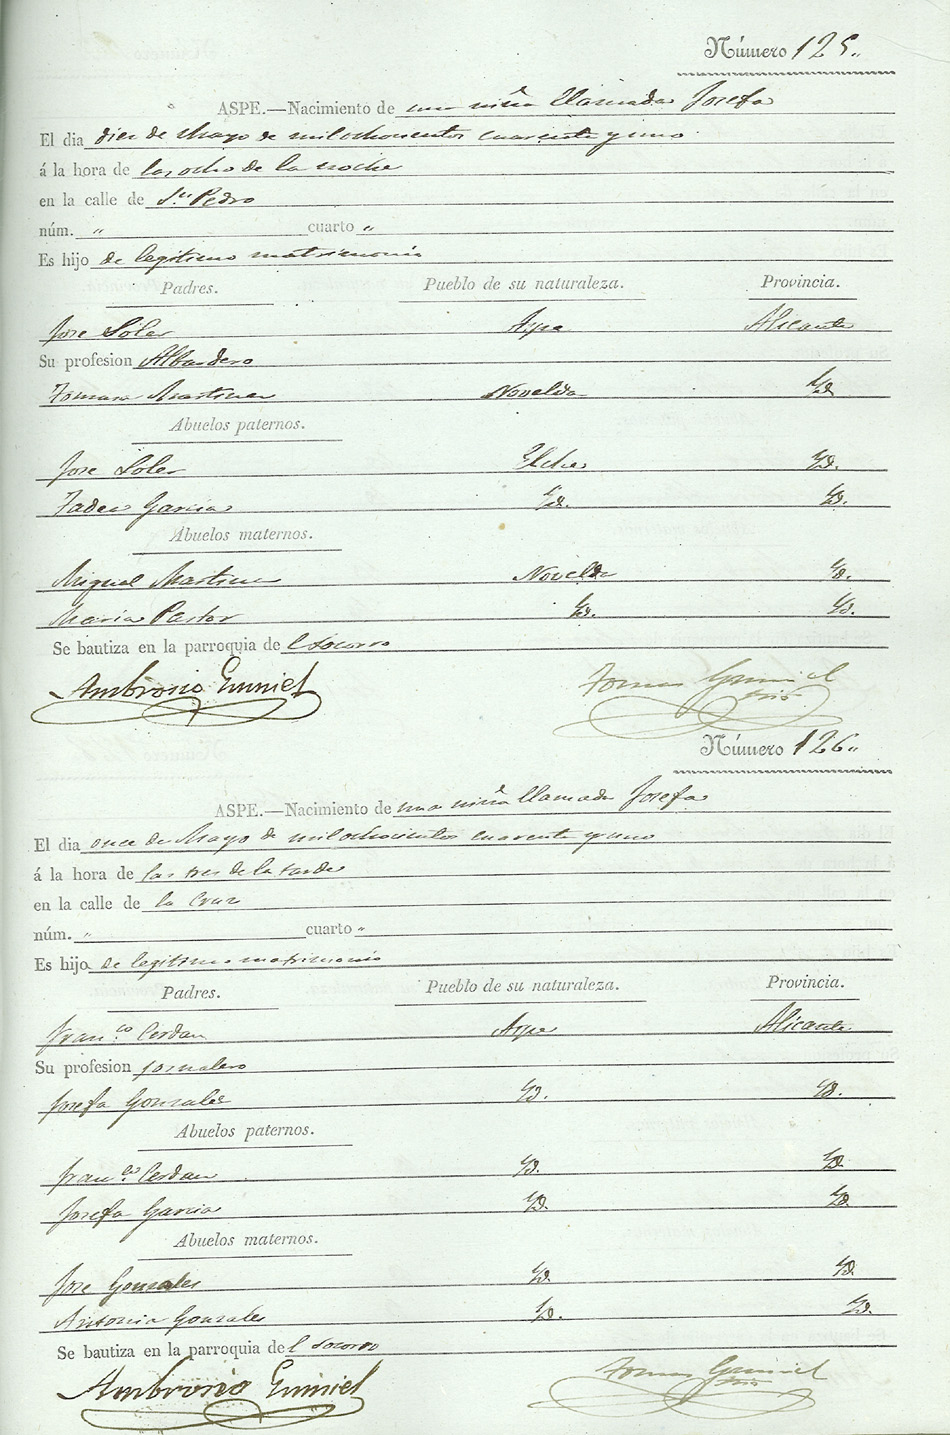 Número 125.,
ASPE.—Nacimiento de una niña llamada Josefa
El dia diez de Mayo de mil ochocientos cuarenta y uno
á la hora de las ocho de la noche
en la calle de Sn. Pedro
núm. „ cuarto „
Es hijo de legitimo matrimonio
Padres. Pueblo de su naturaleza. Provincia.
Jose Soler Aspe Alicante
Su profesion Albardero
Tomasa Martinez Novelda Yd.
Abuelos paternos.
Jose Soler Elche Yd.
Tadea Garcia Yd. Yd.
Abuelos maternos.
Miguel Martinez Novelda Yd.
Maria Pastor Yd. Yd.
Se bautiza en la parroquia del Socorro
Ambrosio Gumiel Tomas Gumiel
Srio.
Número 126.,
ASPE.—Nacimiento de una niña llamada Josefa
El dia once de Mayo de mil ochocientos cuarenta y uno
á la hora de las tres de la tarde
en la calle de la Cruz
núm. „ cuarto „
Es hijo de legitimo matrimonio
Padres. Pueblo de su naturaleza. Provincia.
Franco. Cerdan Aspe Alicante
Su profesion jornalero
Josefa Gonzales Yd. Yd.
Abuelos paternos.
Franco. Cerdan Yd. Yd.
Josefa Garcia Yd. Yd.
Abuelos maternos.
Jose Gonzales Yd. Yd.
Antonia Gonzales Yd. Yd.
Se bautiza en la parroquia del Socorro
Ambrosio Gumiel Tomas Gumiel
Srio